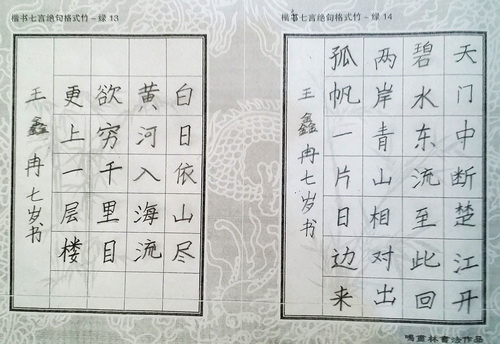 楷书七言绝句格式竹－绿 13
白日依山尽
黄河入海流
欲穷千里目
更上一层楼
王鑫冉七岁书
楷书七言绝句格式竹－绿 14
天门中断楚江开
碧水东流至此回
两岸青山相对出
孤帆一片日边来
王鑫冉七岁书
书法作品